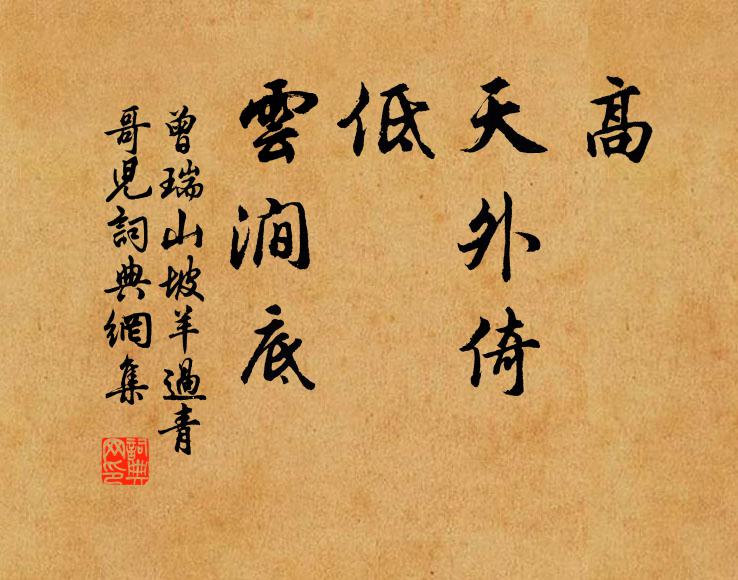 高
天外倚
低
雲澗底
曾瑞山坡羊過青
哥児詞典網集
詞典
网印